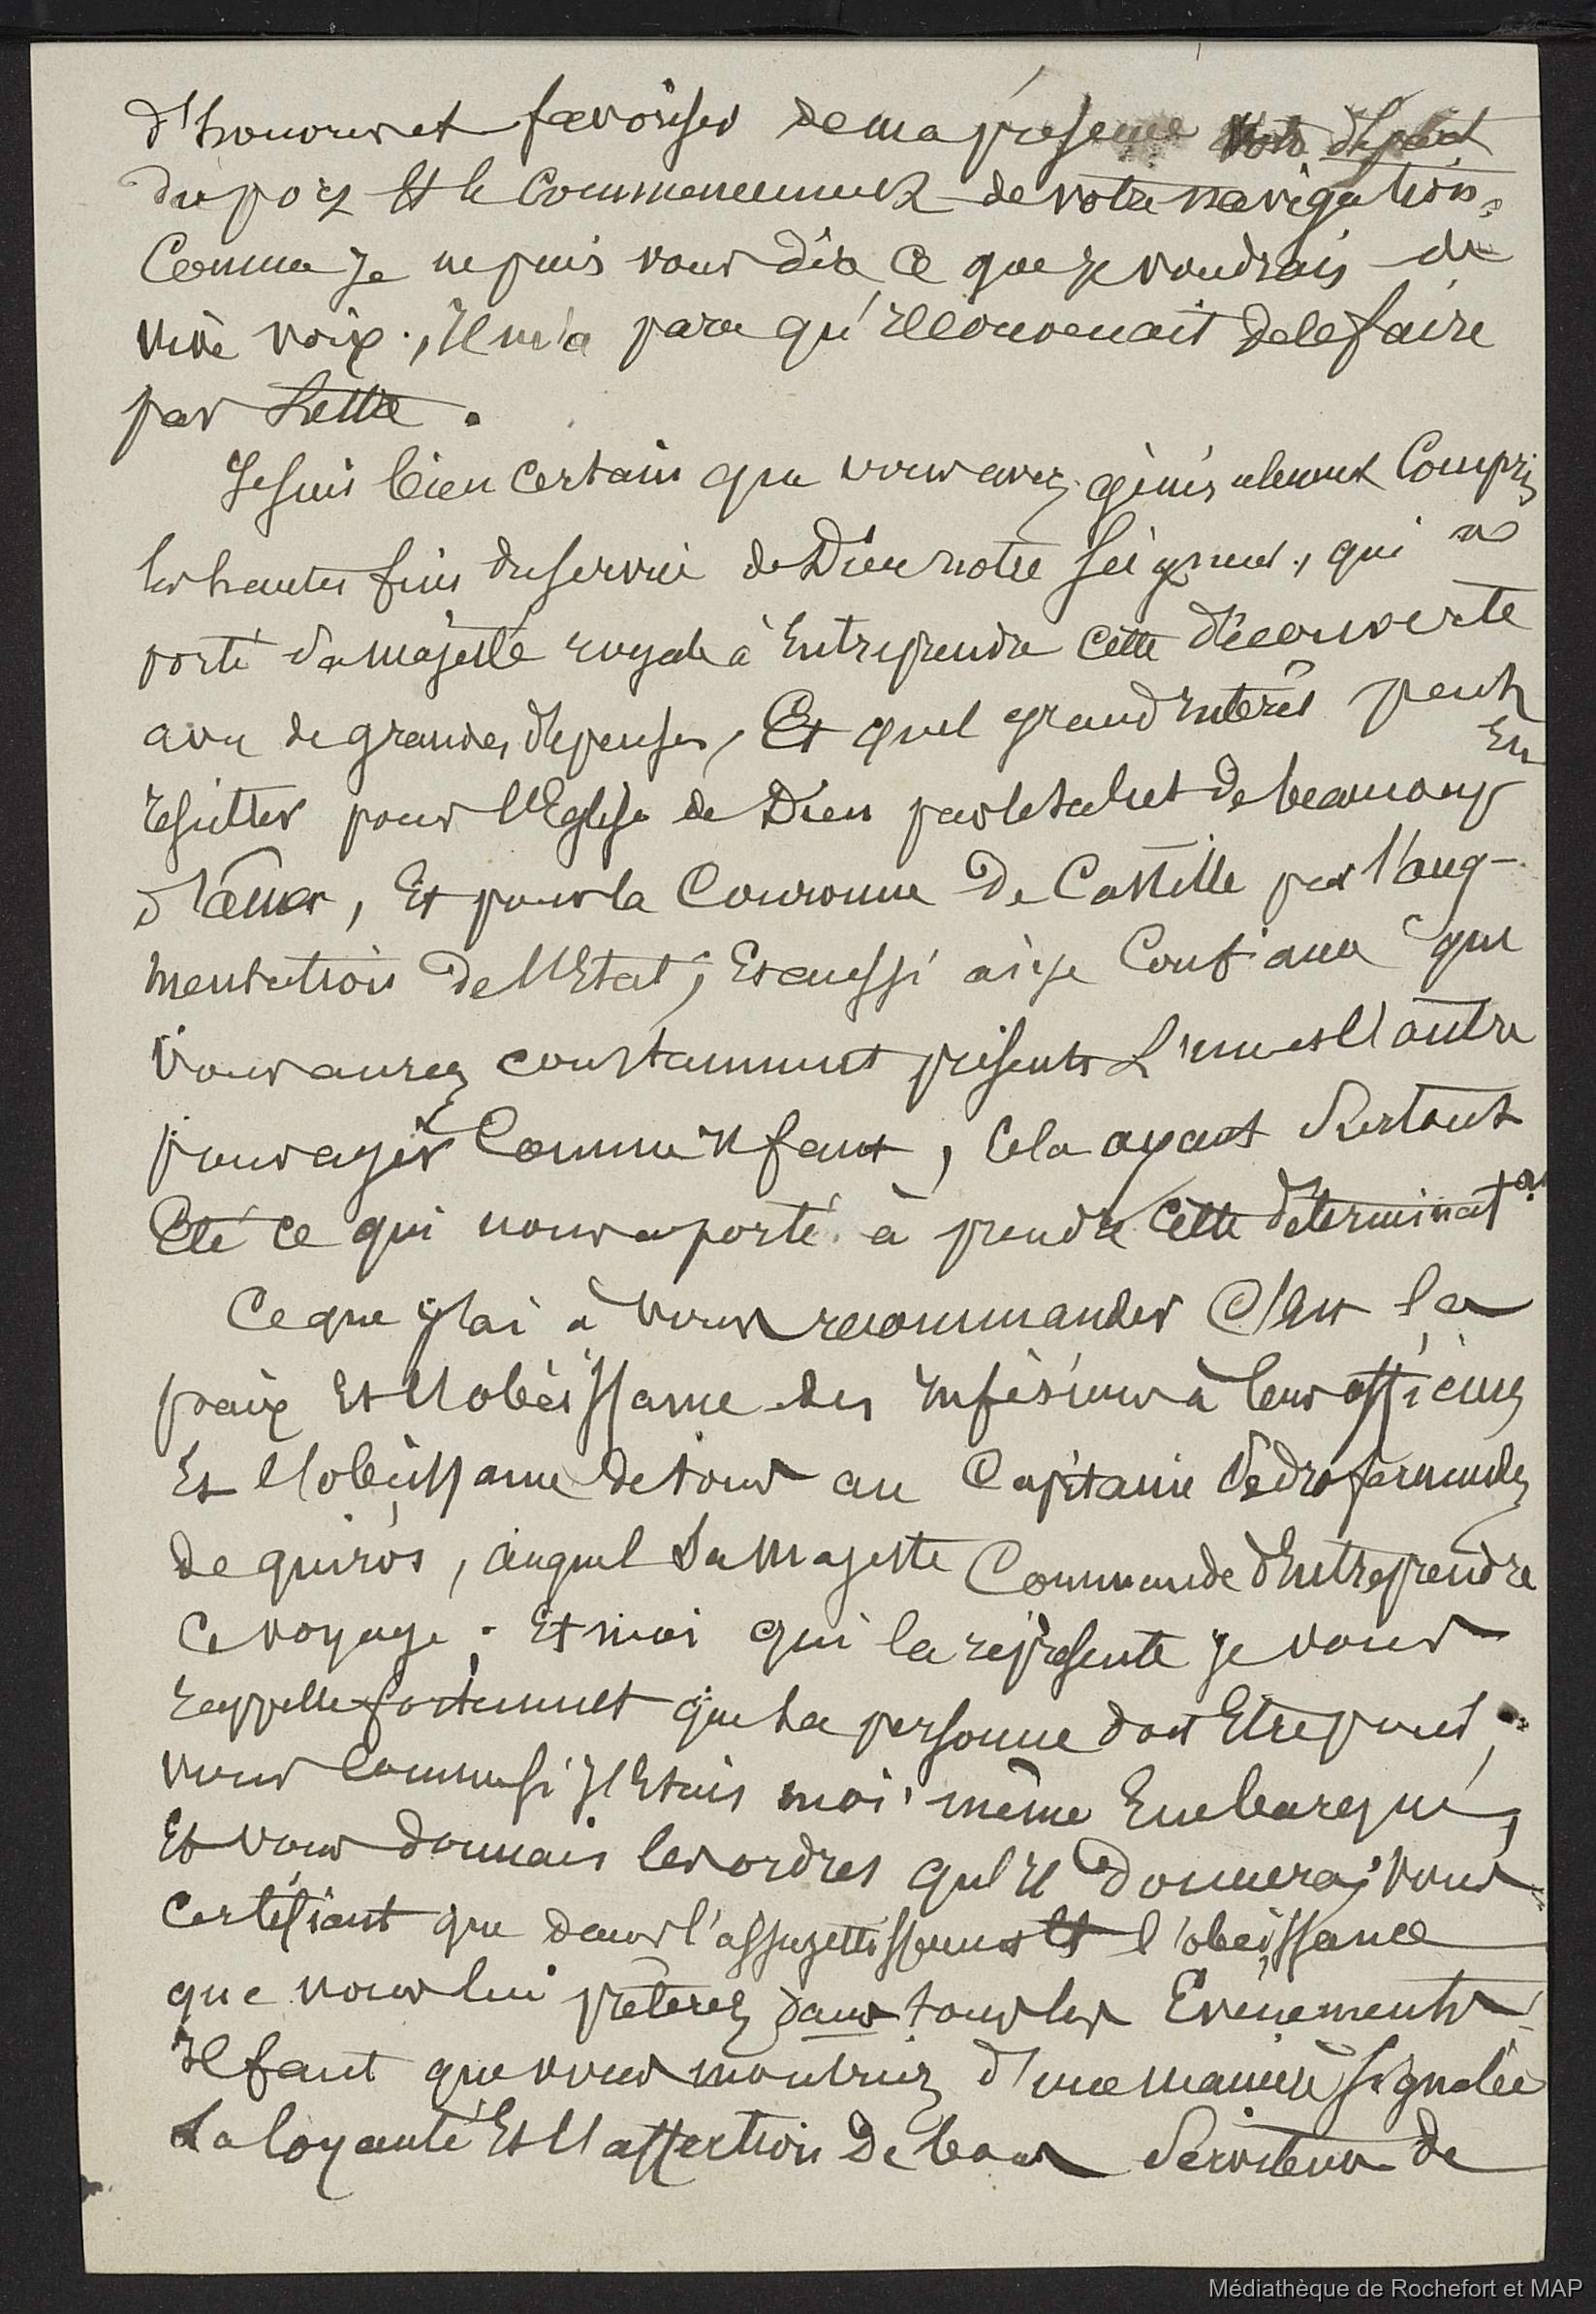 d'honorer et favoriser de ma présence votre départ
du port Et le Commencement de votre navigation.
Comme Je ne puis vous dire ce que je voudrais de
vive voix, Il m'a paru qu'Il convenait de le faire
par Lettre.
Je suis bien certain que vous avez généralement Compris
les hautes fins du service de Dieu notre Seigneur, qui a
porté Sa majesté royale à Entreprendre Cette découverte
avec de grandes dépenses, Et quel grand Intérêt peut
En
résulter pour l'Eglise de Dieu par le salut de beaucoup
d'âmes, Et pour la Couronne De Castille par l'aug-
mentation De l'Etat; Et aussi ai je Confiance que
Vous aurez constamment présents L'une et l'autre
pour agir Comme Il faut, Cela ayant Surtout
Eté ce qui nous a porté à prendre Cette déterminat.on
Ce que j'ai à vous recommander C'est la
paix Et l'obéissance des Inférieurs à leurs officiers
Et l'obéissance de tous au Capitaine Pedro fernandez
de quirós, auquel Sa Majesté Commande d'Entreprendre
Ce voyage; Et moi qui la représente je vous
rappelle fortement que Sa personne doit Etre pour
vous Comme si J'Etais moi-même Embarqué,
Et vous donnais les ordres qu'il Donnera; vous
Certifiant que dans l'assujettissement Et l'obéissance
que vous lui prêterez dans tous les Evénements
Il faut que vous montriez d'une manière signalée
La loyauté Et l'affection De bons Serviteurs de
Médiathèque de Rochefort et MAP